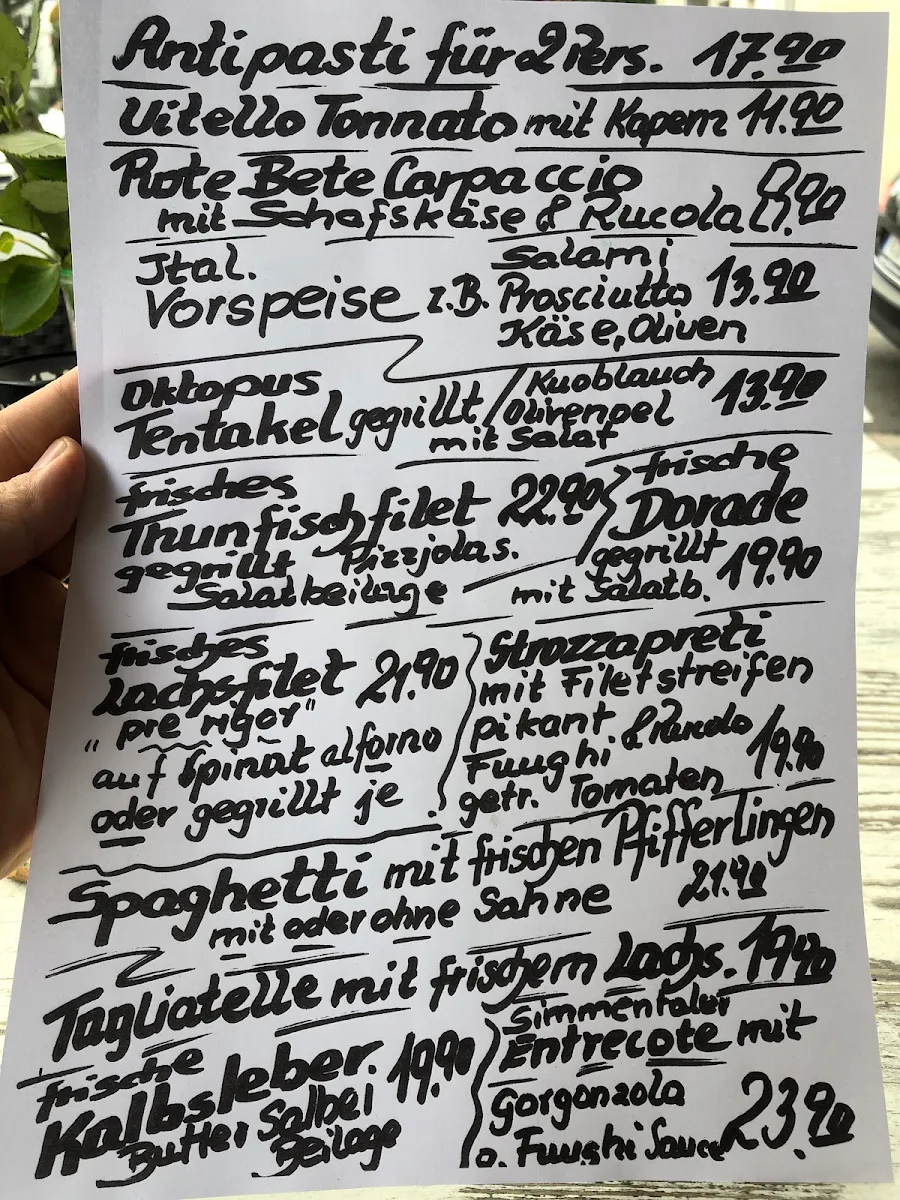 Antipasti für 2 Pers. 17.90
Vitello Tonnato mit Kapern 11.90
Rote Bete Carpaccio
mit Schafskäse & Rucola 8.90
Ital.
Vorspeise z.B.
Salami
Prosciutto 13.90
Käse, Oliven
Oktopus
Tentakel gegrillt /
Knoblauch
Olivenoel 13.90
mit Salat
frisches
Thunfischfilet 22.90
gegrillt Pizzjolas.
Salatbeilage
frische
Dorade
gegrillt
mit Salatb. 19.90
frisches
Lachsfilet 21.90
"pre rigor"
auf Spinat alforno
oder gegrillt je
Strozzapreti
mit Filetstreifen
pikant
Funghi & Rucola 19.90
getr. Tomaten
Spaghetti mit frischen Pfifferlingen
mit oder ohne Sahne 21.90
Tagliatelle mit frischem Lachs. 19.90
frische
Kalbsleber. 19.90
Butter Salbei
Beilage
Simmentaler
Entrecote mit
Gorgonzola
o. Funghi Sauce 23.90